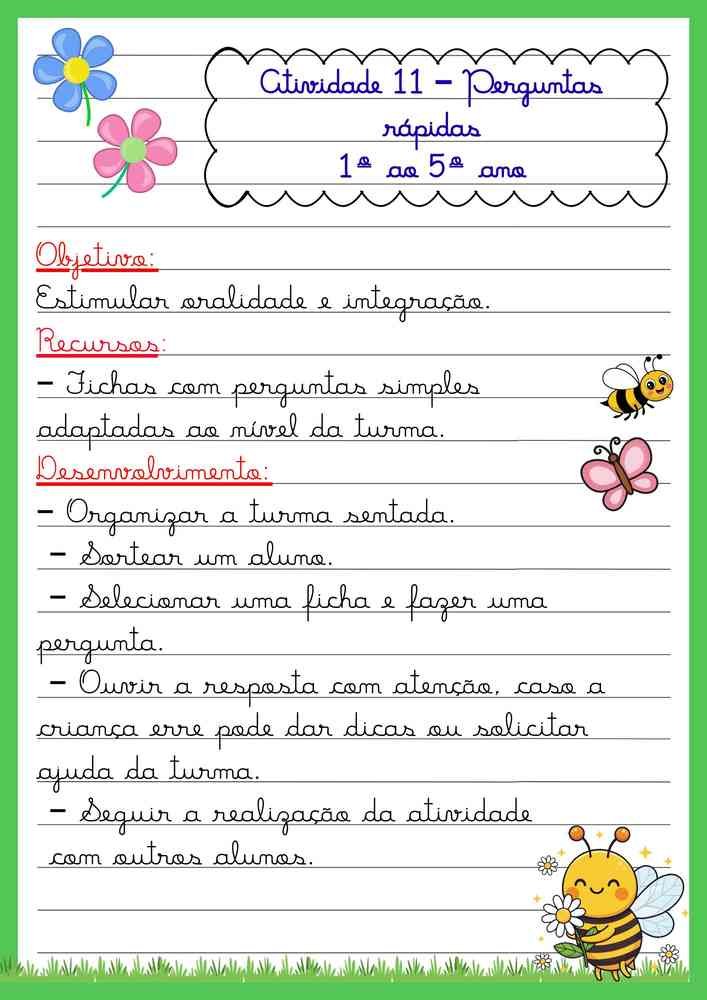 Atividade 11 - Perguntas
rápidas
1º ao 5º ano
Objetivo:
Estimular oralidade e integração.
Recursos:
- Fichas com perguntas simples
adaptadas ao nível da turma.
Desenvolvimento:
- Organizar a turma sentada.
- Sortear um aluno.
- Selecionar uma ficha e fazer uma
pergunta.
- Ouvir a resposta com atenção, caso a
criança erre pode dar dicas ou solicitar
ajuda da turma.
- Seguir a realização da atividade
com outros alunos.